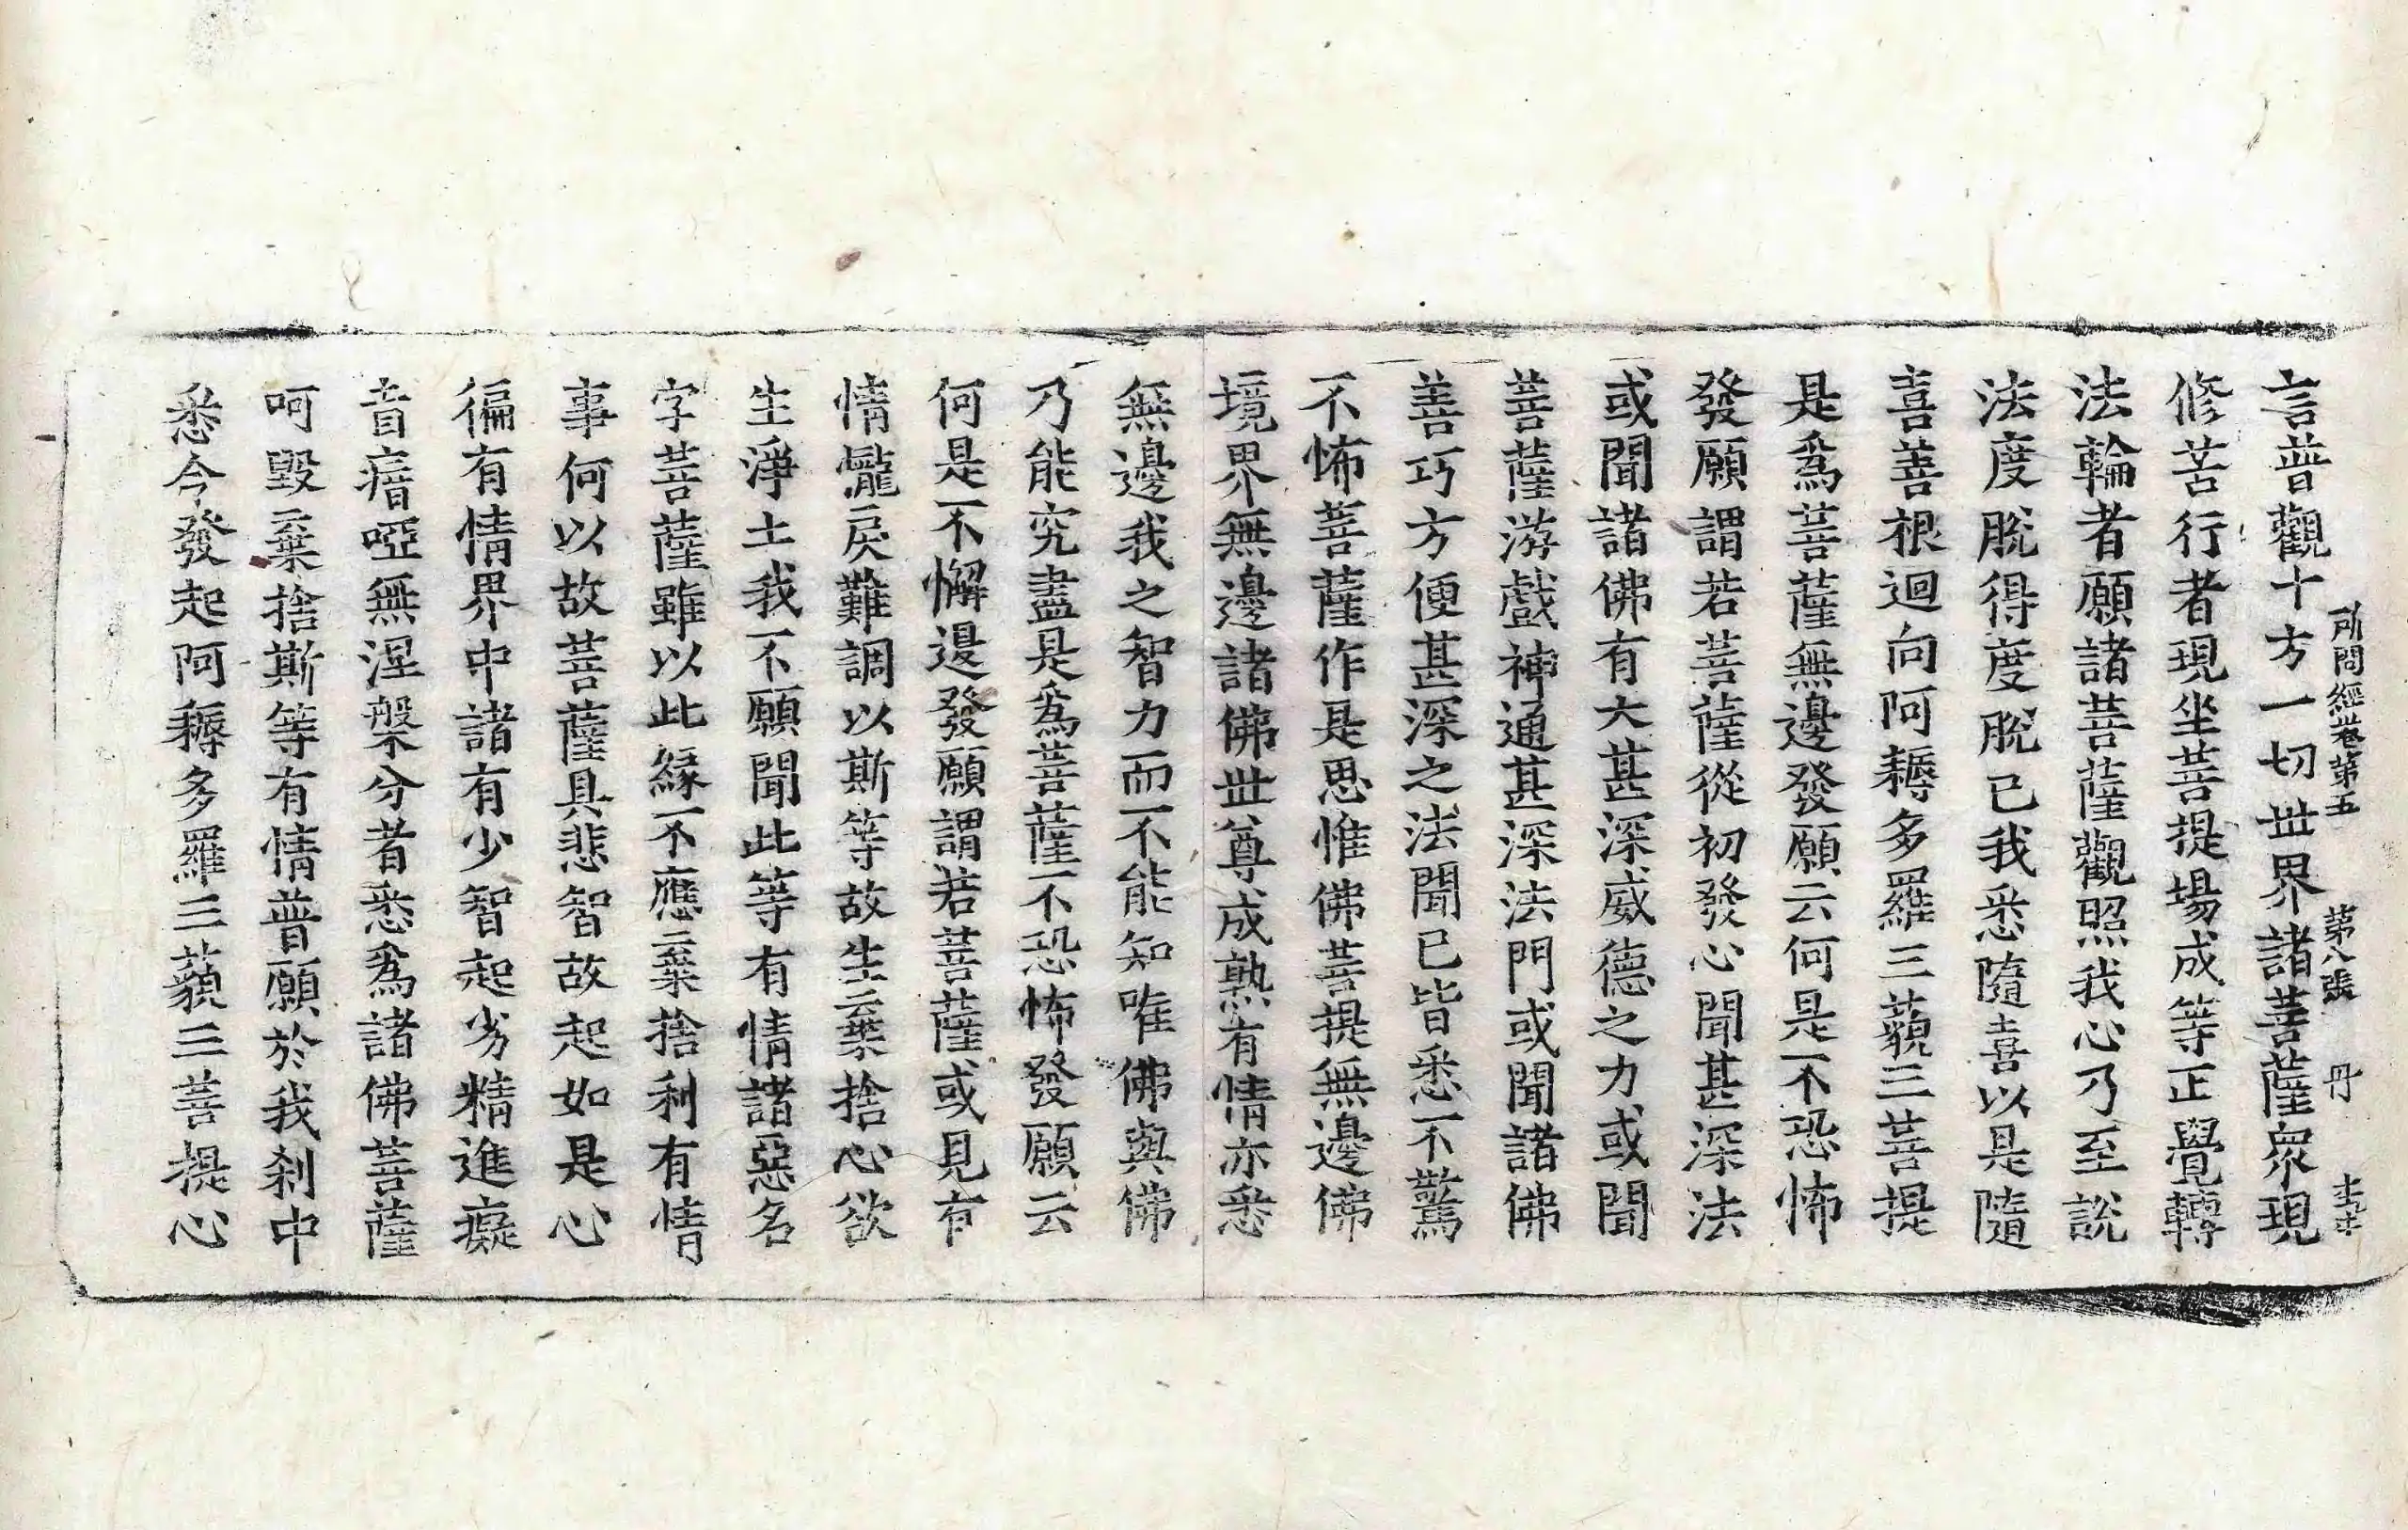 所問經卷第五　第八張　丹
言普觀十方一切世界諸菩薩衆現
修苦行者現坐菩提場成等正覺轉
法輪者願諸菩薩觀照我心乃至說
法度脫得度脫已我悉隨喜以是隨
喜善根迴向阿耨多羅三藐三菩提
是爲菩薩無邊發願云何是不恐怖
發願謂若菩薩從初發心聞甚深法
或聞諸佛有大甚深威德之力或聞
菩薩游戲神通甚深法門或聞諸佛
善巧方便甚深之法聞已皆悉不驚
不怖菩薩作是思惟佛菩提無邊佛
境界無邊諸佛世尊成熟有情亦悉
無邊我之智力而不能知唯佛與佛
乃能究盡是爲菩薩不恐怖發願云
何是不懈退發願謂若菩薩或見有
情儱戾難調以斯等故生棄捨心欲
生淨土我不願聞此等有情諸惡名
字菩薩雖以此緣不應棄捨利有情
事何以故菩薩具悲智故起如是心
徧有情界中諸有少智起劣精進癡
盲瘖啞無涅槃分者悉爲諸佛菩薩
呵毀棄捨斯等有情普願於我刹中
悉令發起阿耨多羅三藐三菩提心